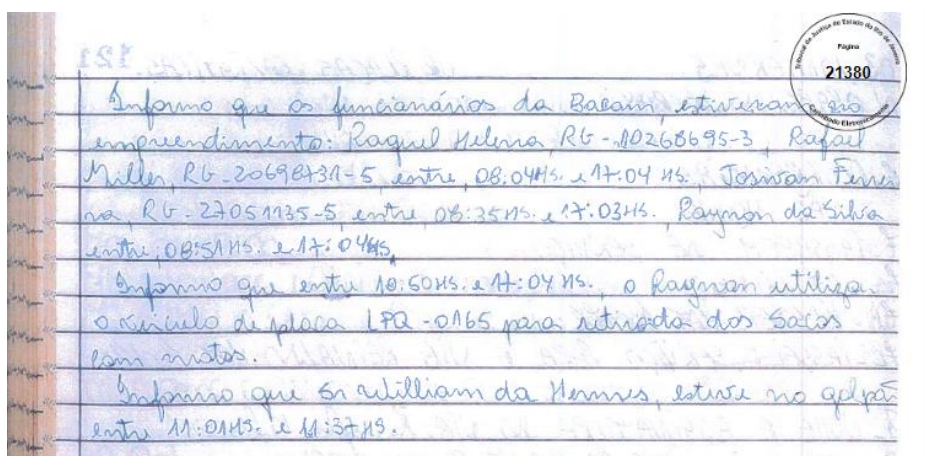 Tribunal de Justiça do Estado do Rio de Janeiro
Página
21380
Carimbado Eletronicamente
121
Informo que os funcionários da Bacam, estiveram no
empreendimento: Raquel Helena, RG-10268695-3, Rafael
Miller, RG-20698731-5, entre, 08:04HS. e 17:04 HS., Josivan Ferrei
ra, RG-27051135-5 entre 08:35HS. e 17:03HS. Raynan da Silva
entre, 08:51HS. e 17:04HS.
Informo que entre 10:50HS. e 17:04 HS., o Raynan utilizou
o veículo de placa LPQ-0165 para retirada dos sacos
com matos.
Informo que Sr Willliam da Hermes, esteve no galpão
entre 11:01HS. e 11:37HS.